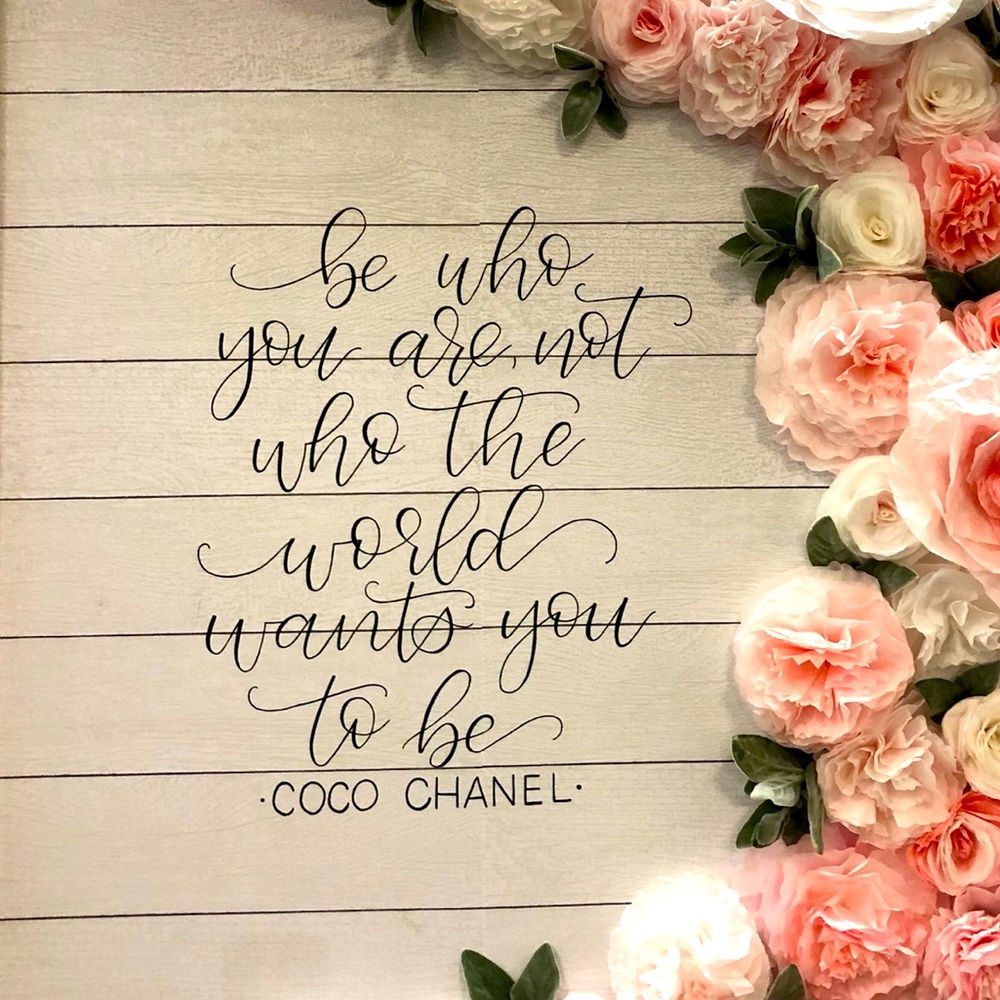 be who
you are, not
who the
world
wants you
to be
·COCO CHANEL·